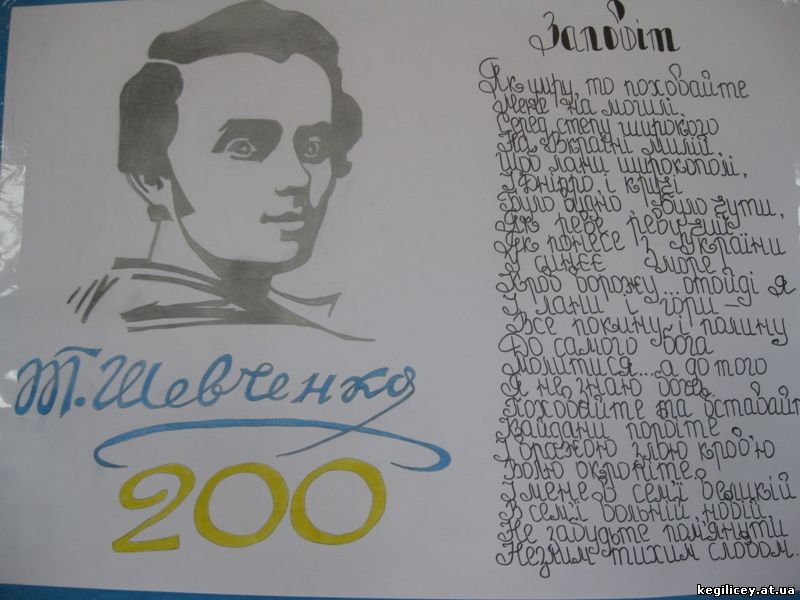 Т. Шевченко
200
Заповіт
Як умру, то поховайте
Мене на могилі,
Серед степу широкого
На Вкраїні милій,
Щоб лани широкополі,
І Дніпро, і кручі
Було видно, було чути,
Як реве ревучий.
Як понесе з України
У синєє море
Кров ворожу... отойді я
І лани і гори —
Все покину, і полину
До самого бога
Молитися... а до того
Я не знаю бога.
Поховайте та вставайте
Кайдани порвіте
І вражою злою кров'ю
Волю окропіте.
І мене в сем'ї великій
В сем'ї вольній, новій
Не забудьте пом'янути
Незлим тихим словом.
kegilicey.at.ua